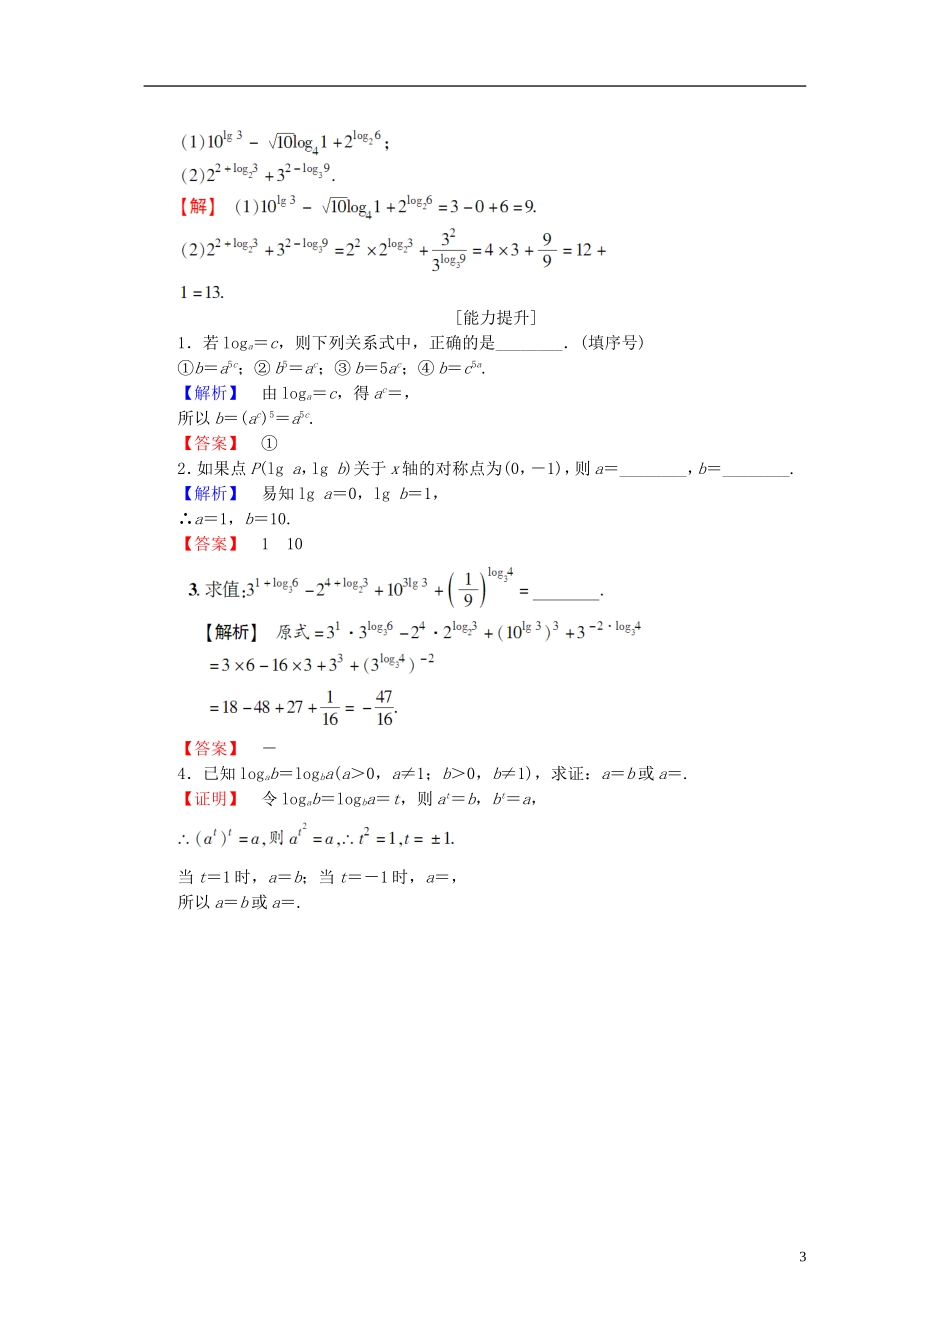 (1)10^{lg 3} − √10log₄1+2^{log₂6};
(2)2^{2+log₂3}+3^{2−log₃9}.
【解】 (1)10^{lg 3} − √10log₄1+2^{log₂6}=3−0+6=9.
(2)2^{2+log₂3}+3^{2−log₃9}=2²×2^{log₂3}+3²/3^{log₃9}=4×3+9/9=12+
1=13.
[能力提升]
1．若 logₐ＝c，则下列关系式中，正确的是________．(填序号)
①b＝a^{5c}；② b⁵＝a^c；③ b＝5a^c；④ b＝c^{5a}.
【解析】 由 logₐ＝c，得 a^c＝，
所以 b＝(a^c)⁵＝a^{5c}.
【答案】 ①
2．如果点 P(lg a，lg b)关于 x 轴的对称点为(0，－1)，则 a＝________，b＝________.
【解析】 易知 lg a＝0，lg b＝1，
∴a＝1，b＝10.
【答案】 1 10
3. 求值:3^{1+log₃6}−2^{4+log₂3}+10^{3lg 3}+(1/9)^{log₃4}=________.
【解析】 原式=3¹·3^{log₃6}−2⁴·2^{log₂3}+(10^{lg 3})³+3^{−2·log₃4}
=3×6−16×3+3³+(3^{log₃4})^{−2}
=18−48+27+1/16=−47/16.
【答案】 －
4．已知 logₐb＝log_b a(a＞0，a≠1；b＞0，b≠1)，求证：a＝b 或 a＝.
【证明】 令 logₐb＝log_b a＝t，则 a^t＝b，b^t＝a，
∴(a^t)^t=a,则 a^{t²}=a,∴t²=1,t=±1.
当 t＝1 时，a＝b；当 t＝－1 时，a＝，
所以 a＝b 或 a＝.
3